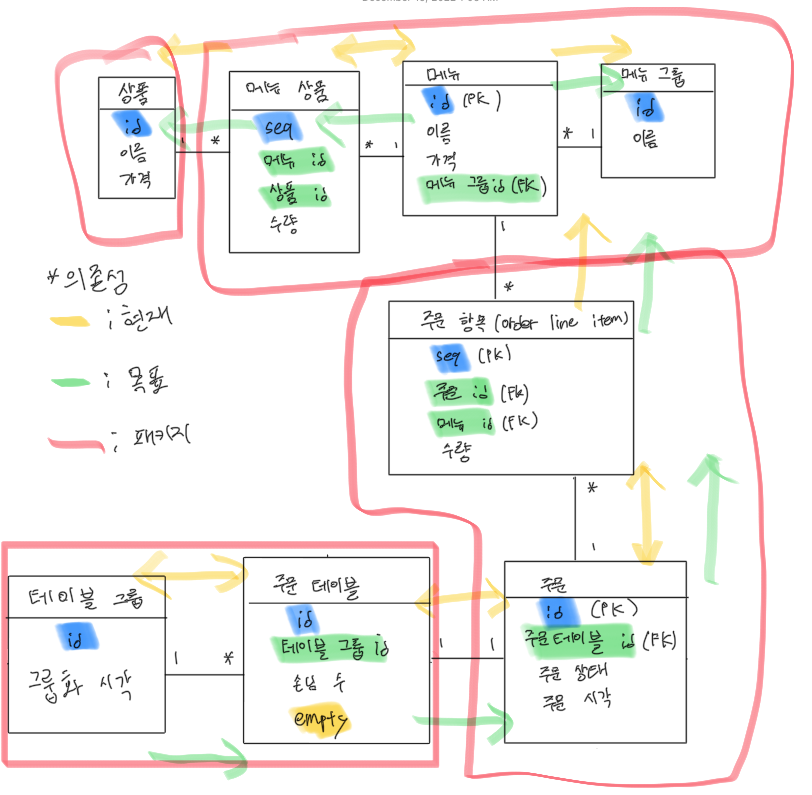 상품
id
이름
가격
메뉴 상품
seq
메뉴 id
상품 id
수량
메뉴
id (PK)
이름
가격
메뉴 그룹id (FK)
메뉴 그룹
id
이름
1
*
*
1
*
1
1
*
* 의존성
; 현재
; 목표
; 패키지
주문 항목 (order line item)
seq (PK)
주문 id (FK)
메뉴 id (FK)
수량
*
1
테이블 그룹
id
그룹화 시각
1
*
주문 테이블
id
테이블 그룹 id
손님 수
empty
1
1
주문
id (PK)
주문테이블 id (FK)
주문 상태
주문 시각